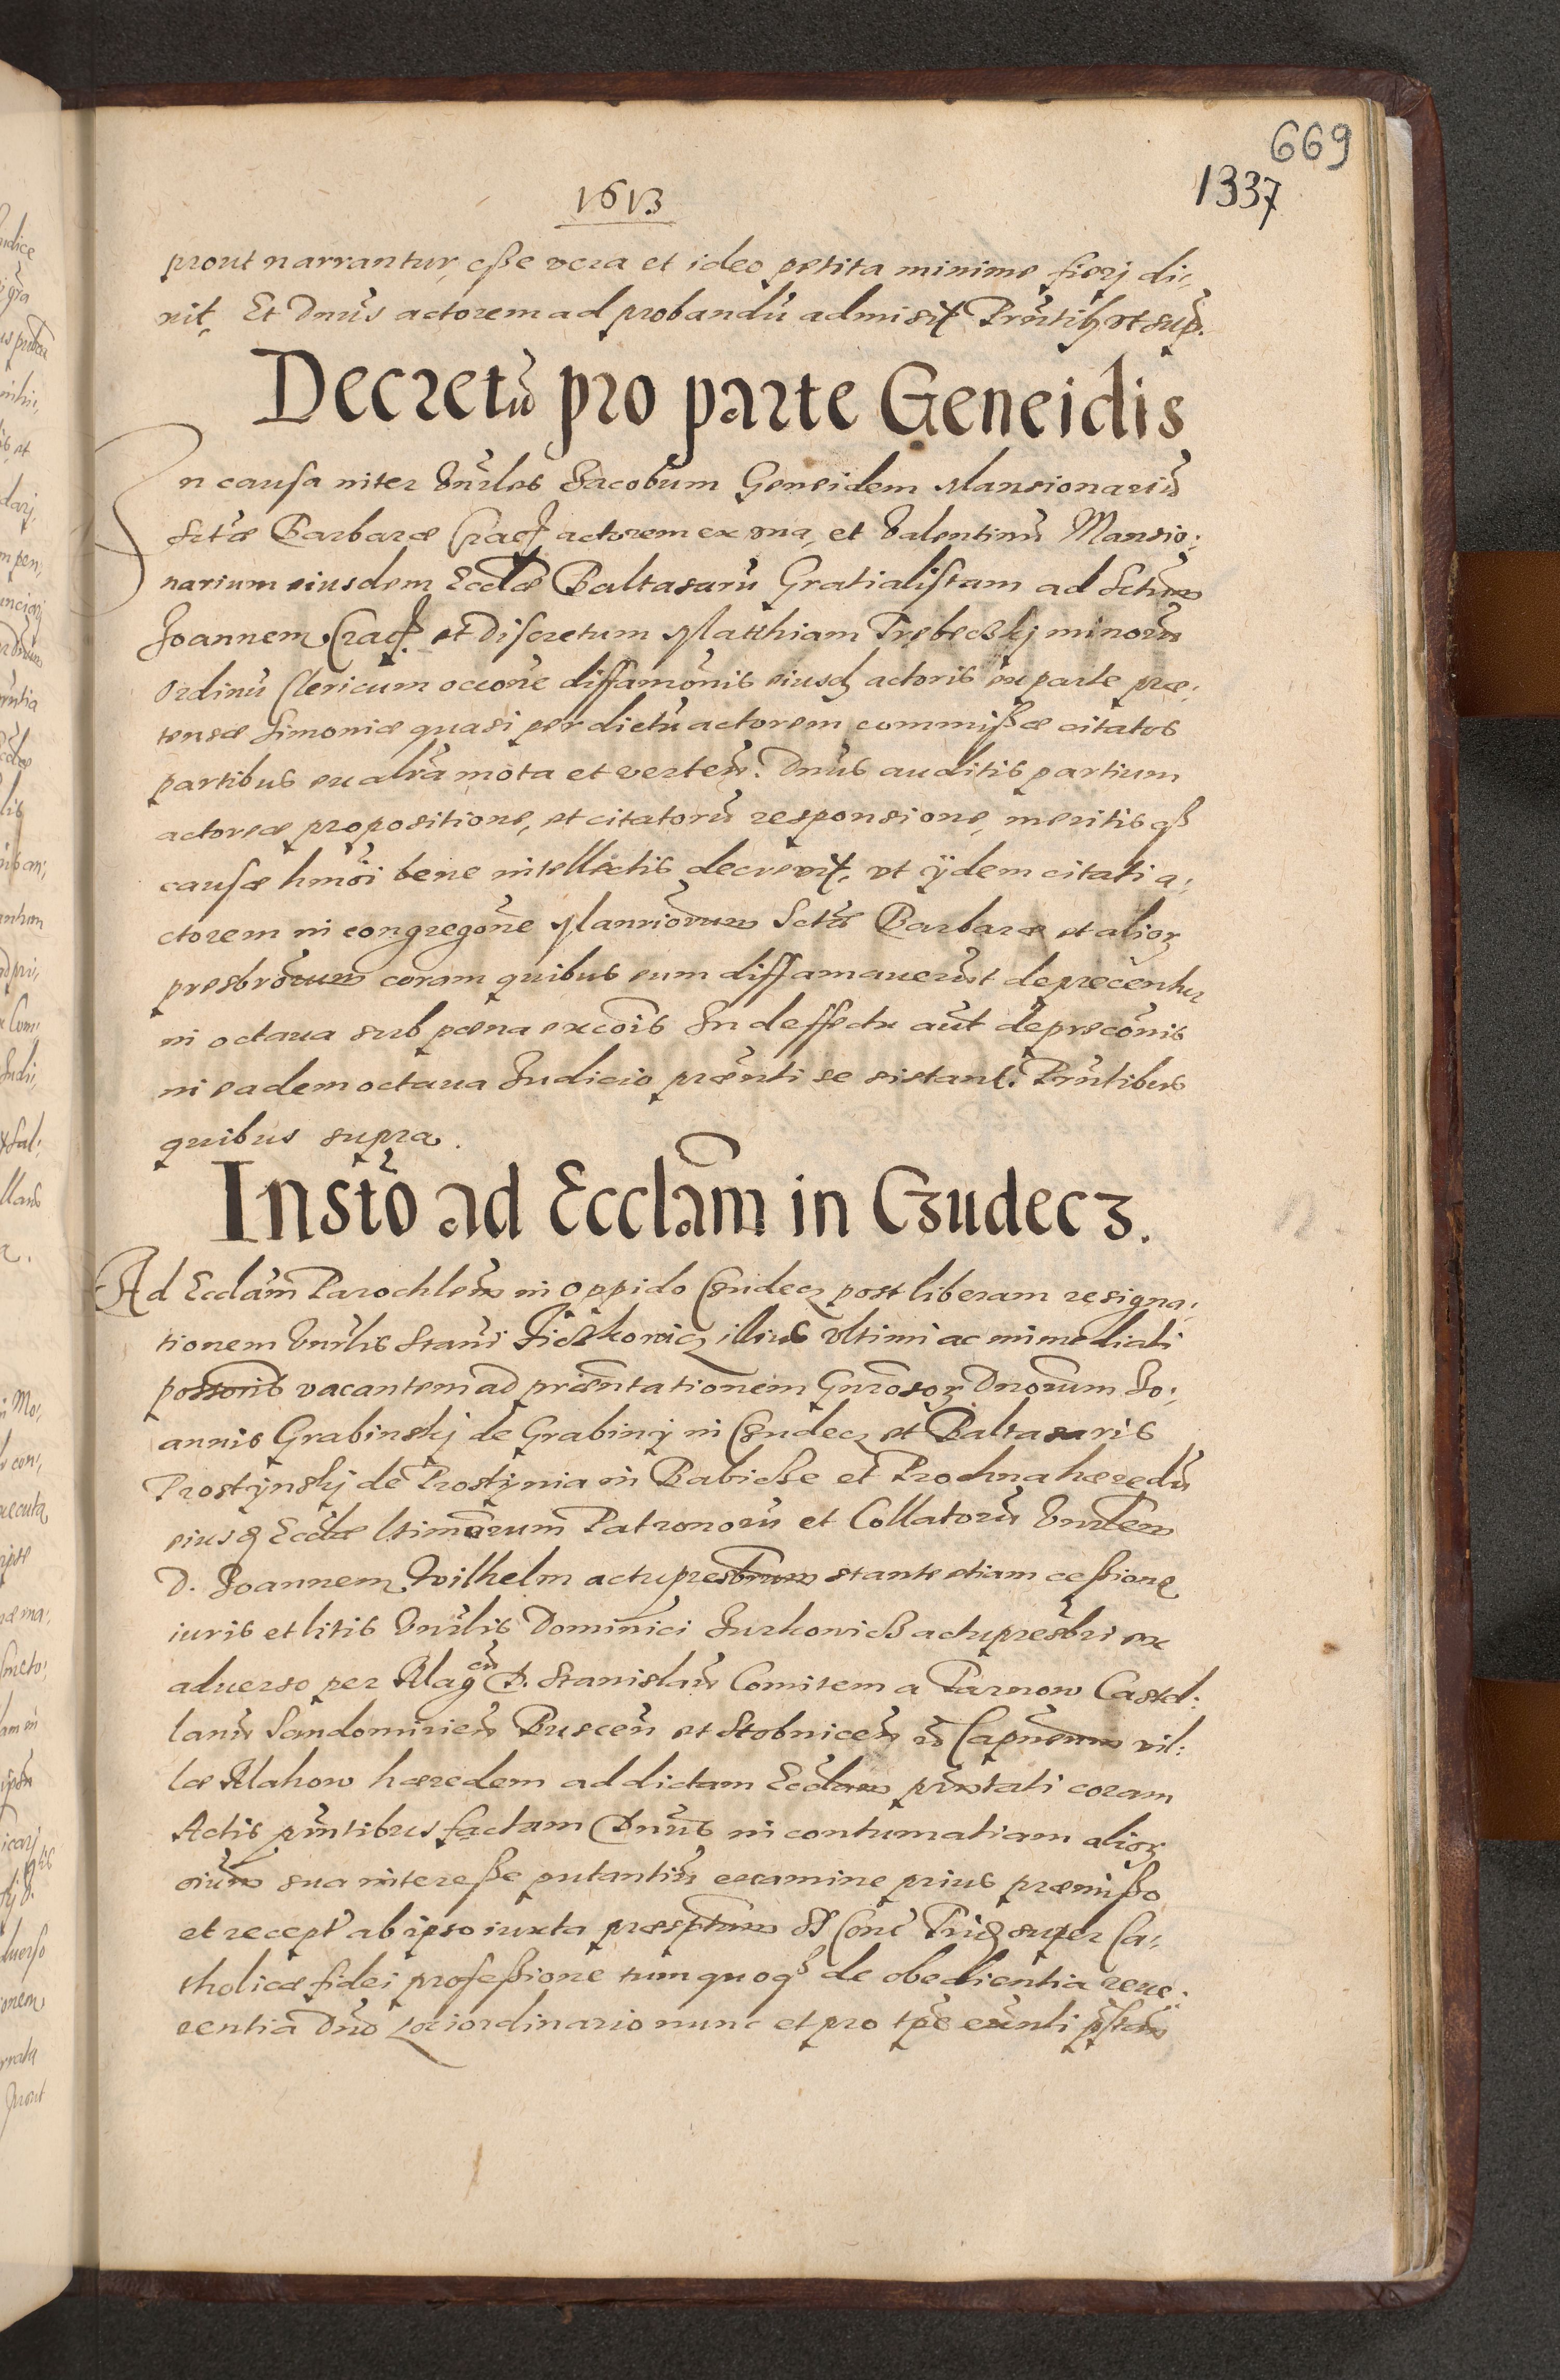 669
1337
1613
prout narrantur, eße vera et ideo petita minime fierj di,
xit, Et Dnũs actorem ad probandũ admisit Prñtibȝ vt sup.
Decretũ pro parte Geneidis
In causa inter Vnrles Jacobum Geneidem Mansionariũ
Sctæ Barbaræ Crac. actorem ex vna, et Valentinũ Mansio:
narium eiusdem Ecclæ Baltasarũ Gratialistam ad Sctum
Joannem Crac. et Discretum Matthiam Trebecskj minorũ
Ordinũ Clericum occone diffamonis eiusdȝ actoris ex parte præ,
tensæ Simoniæ quasi per dictũ actorem commißæ citatos
partibus ex altra mota et verten. Dnũs auditis partium
actoreæ propositione, et citatorũ responsione, meritis qȝ
causæ hmoi bene intellectis decrevit, vt ijdem citati a,
ctorem in congregone Mansiorum Sctæ Barbaræ et aliorȝ
presbrorum coram quibus eum diffamauerũt deprecentur
in octaua sub pæna excois In deffectu aut depreconis
in eadem octaua Judicio prænti se sistant. Prñtibus
quibus supra.
Insto ad Ecclam in Czudecz.
Ad Ecclam Parochlem in Oppido Czudecz post liberam resigna,
tionem Vnrlis Stani illius vltimi ac immediati
possoris vacantem ad præntationem Gnrosorȝ Dnorum Jo,
annis Grabinskj de Grabiny in Czudecz et Baltasaris
Prostynskj de Prostynia in Babicße et Prochna hæredũ
eiusdȝ Ecclæ ltimorum Patronorũ et Collatorũ Vnrlem
D. Joannem Wilhelm actu presbrum stante etiam ceßione
iuris et litis Vnrlis Dominici Jurkowicß actu presbri ex
aduerso per Magcũ D. Stanislaũ Comitem a Tarnow Castel:
lanũ Sandomirien Buscen et Stobnicen Capneum vil:
læ Mahow hæredem ad dictam Ecclam prñtati coram
Actis prñtibus factam Dnũs in contumatiam aliorȝ
oium sua intereße putantiũ examine prius præmißo
et recept ab ipso iuxta præsptum St Conc Trid super Ca,
tholicæ fidei profeßione tum quoqȝ de obedientia reue,
rentia Dno Loci ordinario nunc et pro tpe exnti pstan